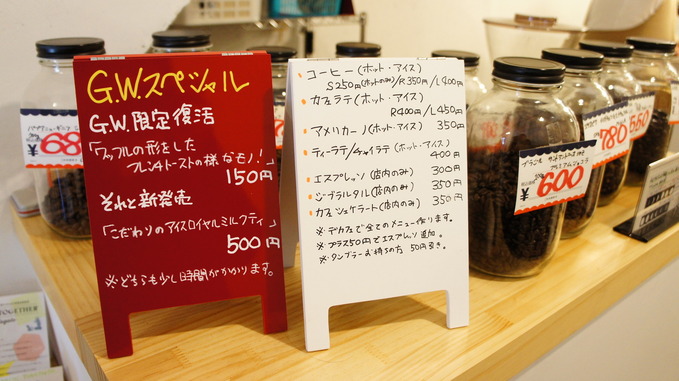 G.W.スペシャル
G.W.限定復活
「ワッフルの形をした
フレンチトーストの様なモノ!」
150円
それと新発売
「こだわりのアイスロイヤルミルクティ」
500円
※どちらも少し時間がかかります。
コーヒー(ホット・アイス)
S250円/R350円/L400円
カフェラテ(ホット・アイス)
R400円/L450円
アメリカーノ(ホット・アイス) 350円
ティーラテ/チャイラテ(ホット・アイス)
400円
エスプレッソ(店内のみ) 300円
ジブラルタル(店内のみ) 350円
カフェシェケラート(店内のみ) 350円
※デカフェで全てのメニュー作ります。
※プラス50円でエスプレッソ追加。
※タンブラーお持ちの方 50円引き。
¥680
ブラジル
¥600
780
550
TOGETHER